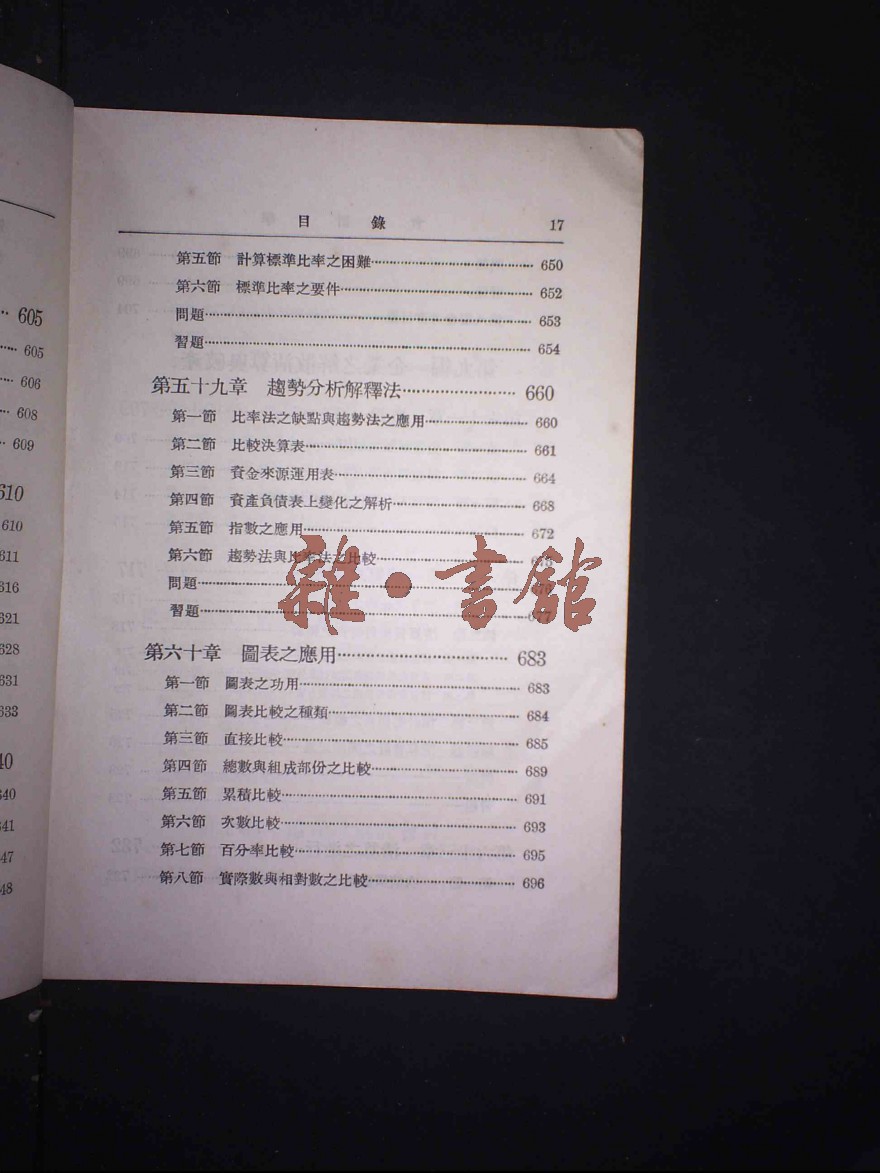 605
605
606
608
609
610
610
611
616
621
628
631
633
640
641
目錄 17
第五節 計算標準比率之困難 650
第六節 標準比率之要件 652
問題 653
習題 654
第五十九章 趨勢分析解釋法 660
第一節 比率法之缺點與趨勢法之應用 660
第二節 比較決算表 661
第三節 資金來源運用表 664
第四節 資產負債表上變化之解析 668
第五節 指數之應用 672
第六節 趨勢法與比率法之比較
問題
習題 677
雜·書館
第六十章 圖表之應用 683
第一節 圖表之功用 683
第二節 圖表比較之種類 684
第三節 直接比較 685
第四節 總數與組成部份之比較 689
第五節 累積比較 691
第六節 次數比較 693
第七節 百分率比較 695
第八節 實際數與相對數之比較 696